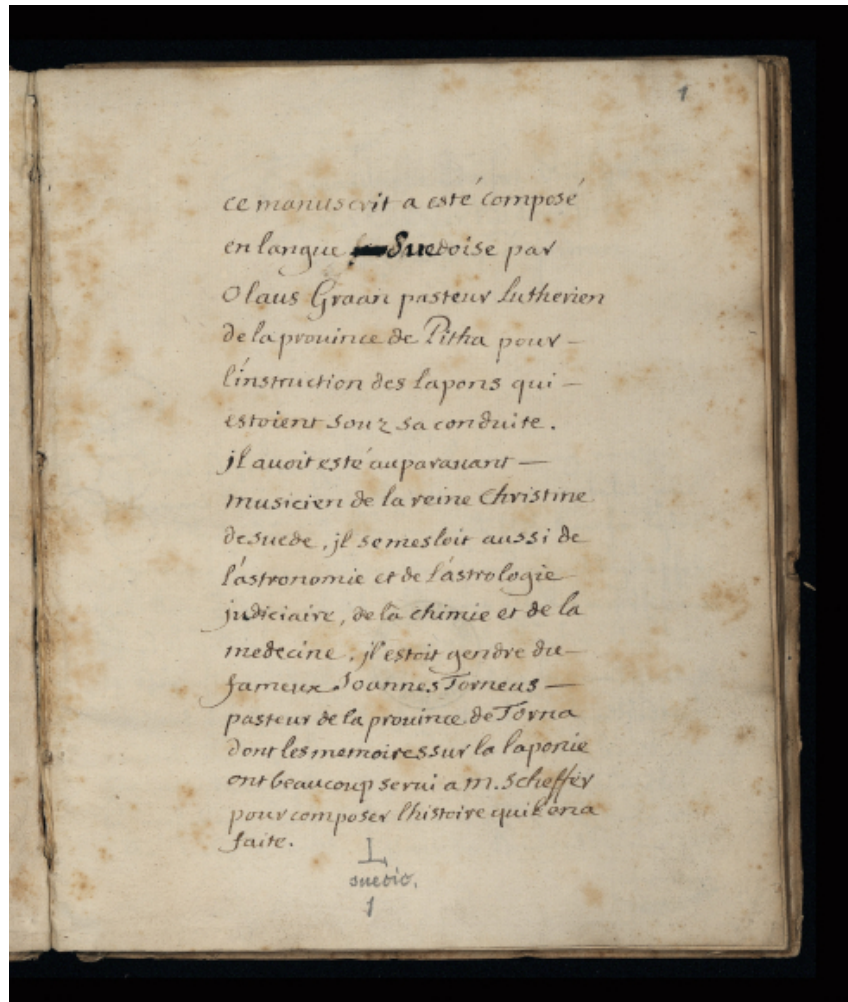 1
ce manuscrit a esté composé
en langue Suedoise par
Olaus Graan pasteur Lutherien
de la prouince de Pitha pour —
l'instruction des lapons qui —
estoient souz sa conduite.
jl auoit esté auparauant —
musicien de la reine Christine
de suede, jl se mesloit aussi de
l'astronomie et de l'astrologie
judiciaire, de la chimie et de la
medecine. jl estoit gendre du —
fameux Joannes Torneus —
pasteur de la prouince de Torna
dont les memoires sur la laponie
ont beaucoup serui a m. Scheffer
pour composer lhistoire quil en a
faite.
L
suedic.
1